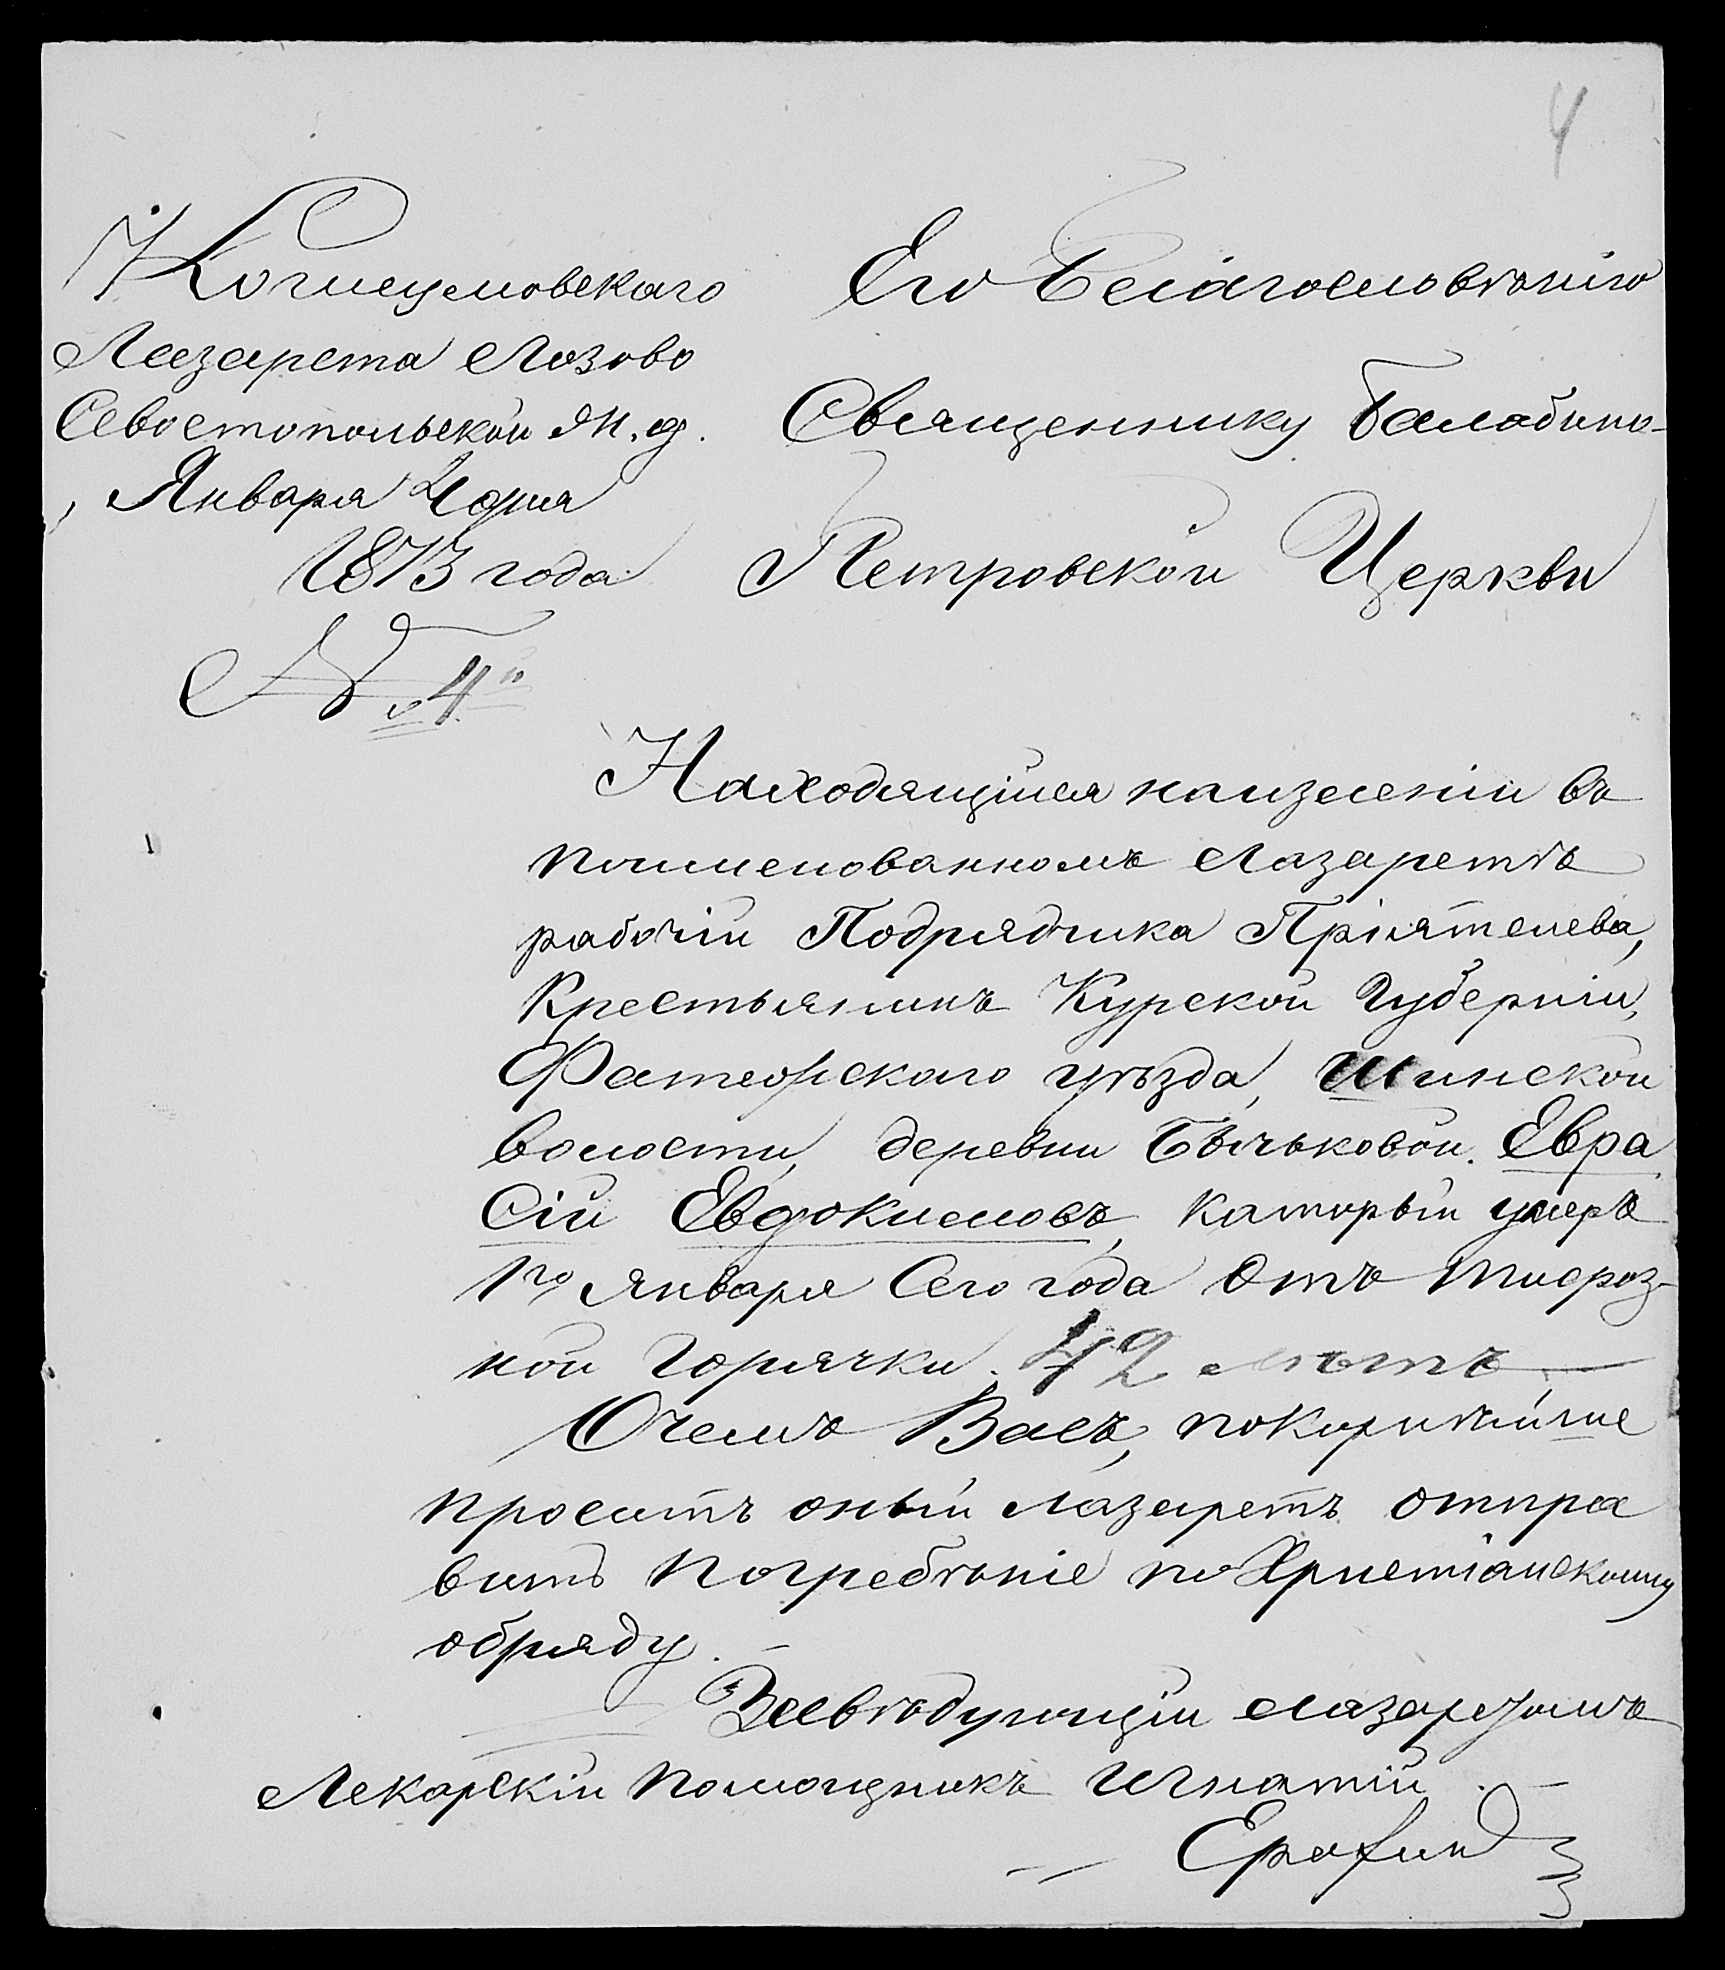 4
Кочщумовскаго
Лазарета Лозово
Севостопольской ж. д.
Января 4 дня
1873 года
№ 4й
Его Благословѣнію
Священнику Балабино-
Петровской Церкви
Находящійся наизлеченіи въ
поименованномъ Лазаретѣ
рабочій Подрядчика Пріятелева,
Крестьянинъ Курской Губерніи,
Фатеорскаго уѣзда, Шинской
волости, деревни Бычьковой. Евра
сій Евдокимовъ, каторый умеръ
1го Января Сего года Отъ тиероз-
ной Горячки. 42 лѣтъ
Очемъ Васъ, покорнѣйше
проситъ оный Лазаретъ отпра
вить погребѣніе по Христіанскому
обряду.
Завѣдующій Лазаретомъ
Лекарскій помощникъ Игнатій